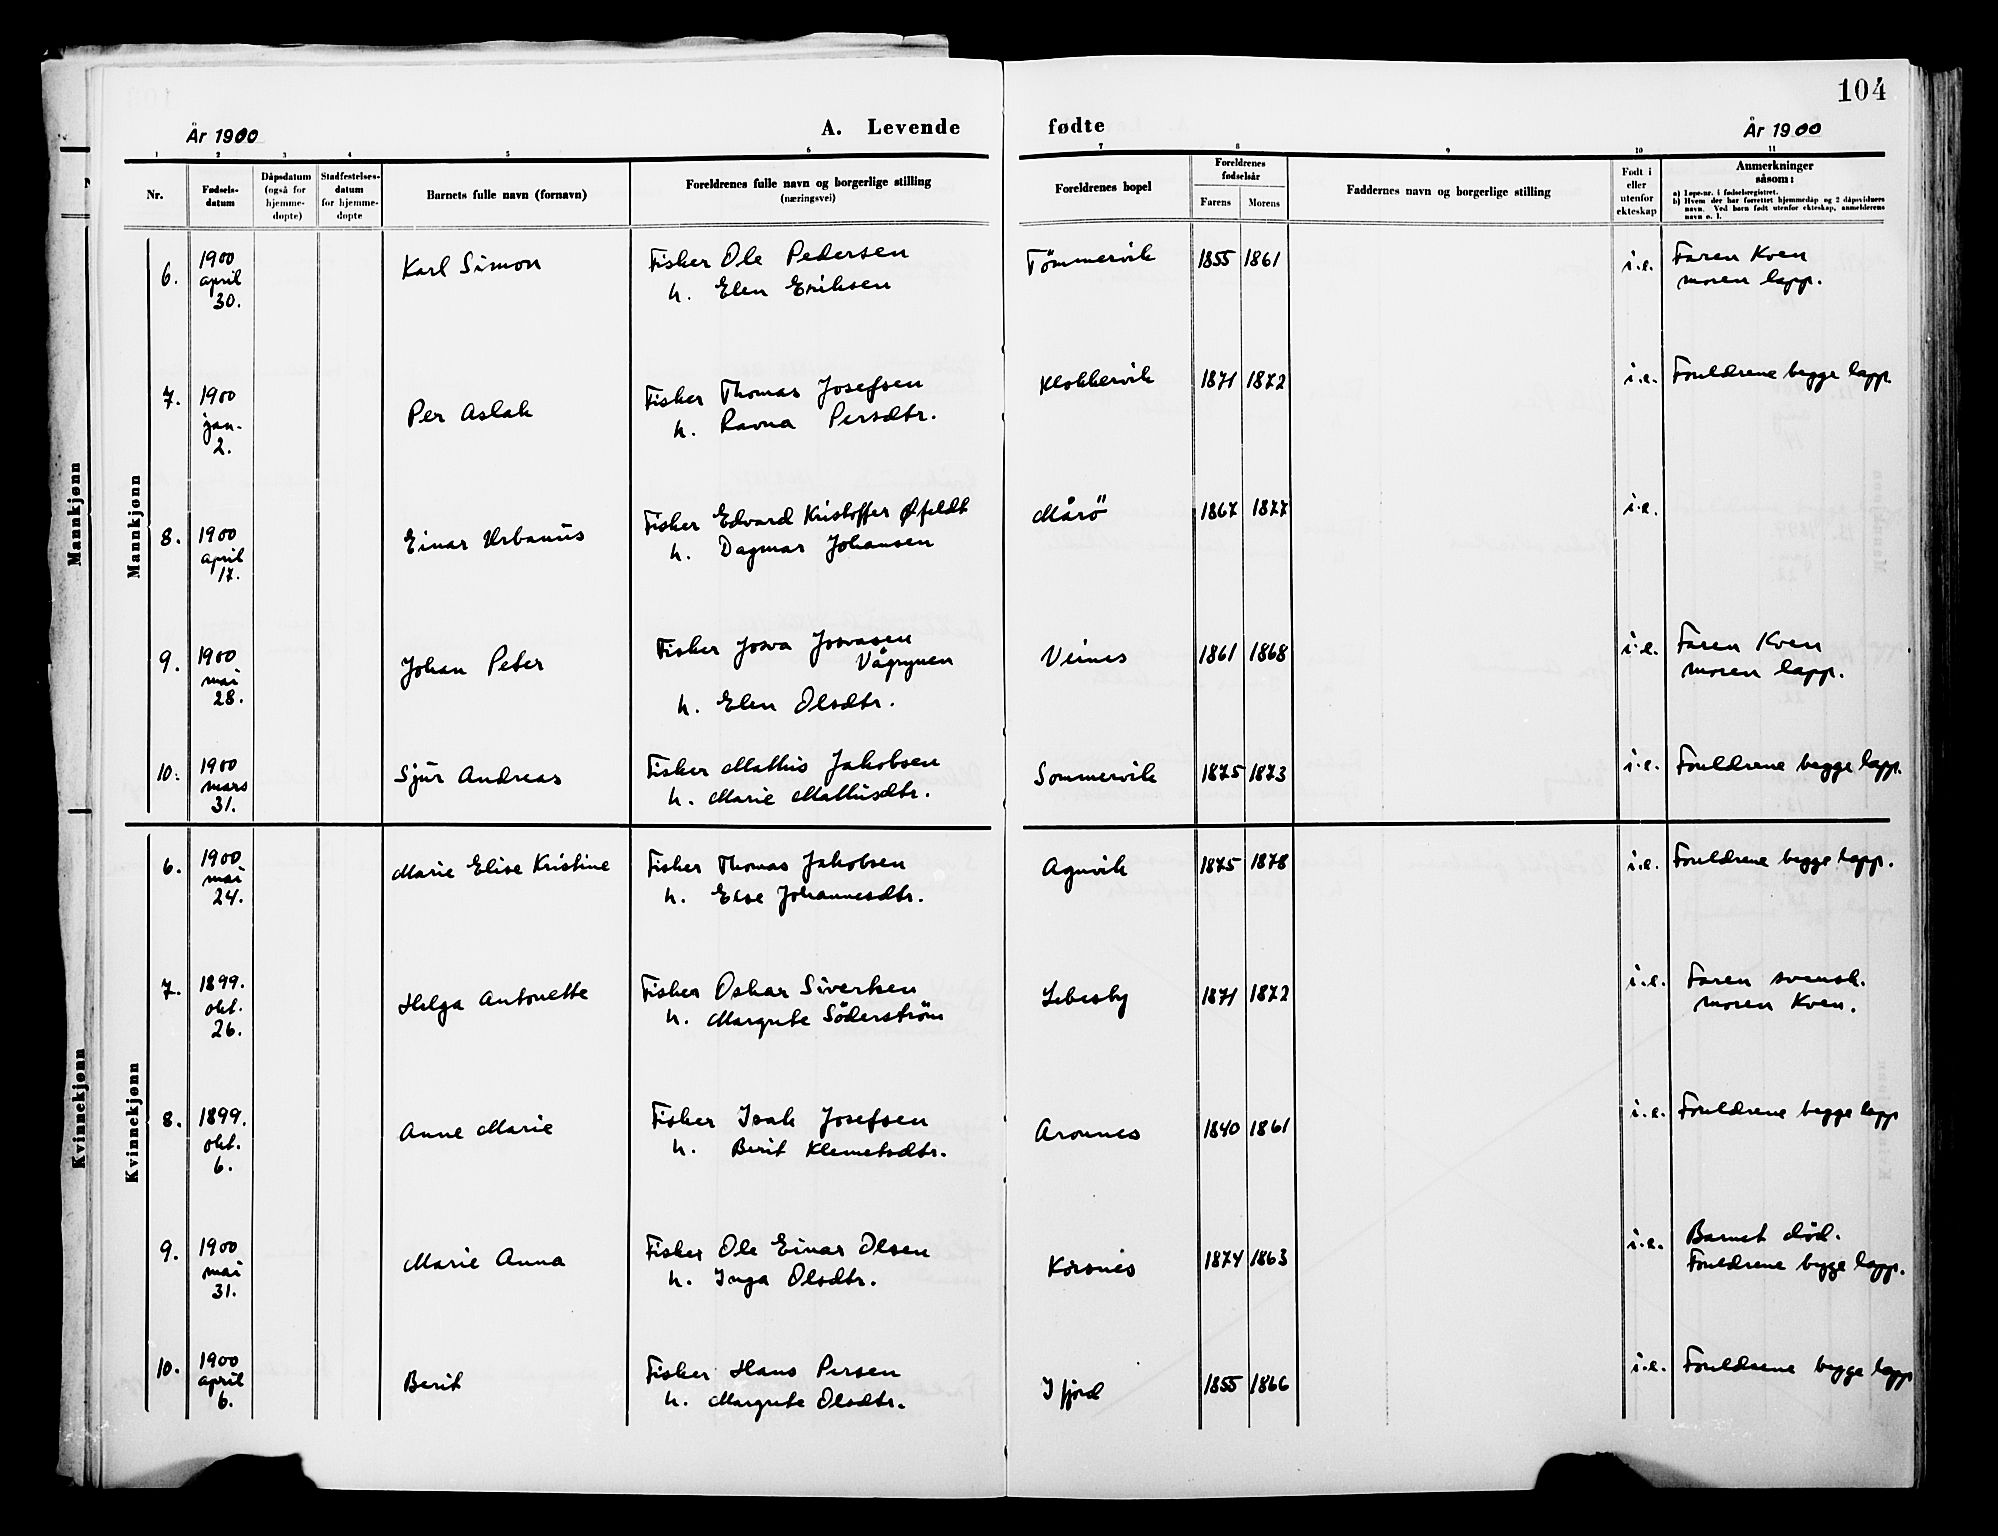 104
År 1900
A. Levende fødte
År 1900
1 2 3 4 5 6 7 8 9 10 11
Nr.
Fødsels-
datum
Dåpsdatum
(også for
hjemme-
døpte)
Stadfestelses-
datum
for hjemme-
døpte
Barnets fulle navn (fornavn)
Foreldrenes fulle navn og borgerlige stilling
(næringsvei)
Foreldrenes bopel
Foreldrenes
fødselsår
Farens Morens
Faddernes navn og borgerlige stilling
Født i
eller
utenfor
ekteskap
Anmerkninger
såsom:
a) Løpe-nr. i fødselsregistret.
b) Hvem der har forrettet hjemmedåp og 2 dåpsvidners
navn. Ved barn født utenfor ekteskap, anmelderens
navn o. l.
Mannkjønn
Mannkjønn
6. 1900 april 30. Karl Simon Fisker Ole Pedersen Tømmervik 1855 1861 i.e. Faren Kven
h. Elen Eriksen moren lapp.
7. 1900 jan. 2. Per Aslak Fisker Thomas Josefsen Klokkervik 1871 1872 i.e. Foreldrene begge lapp.
h. Ravna Persdtr.
8. 1900 april 17. Einar Urbanus Fisker Edvard Kristoffer Øfeldt Mårö 1867 1877 i.e.
h. Dagmar Johansen
9. 1900 mai 28. Johan Peter Fisker Josva Josvasen Veines 1861 1868 i.e. Faren Kven
moren lapp.
h. Elen Olsdtr.
10. 1900 mars 31. Sjur Andreas Fisker Mathis Jakobsen Sommervik 1875 1873 i.e. Foreldrene begge lapp.
h. Marie Mathisdtr.
Kvinnekjønn
Kvinnekjønn
6. 1900 mai 24. Marie Elise Kristine Fisker Thomas Jakobsen Agnvik 1875 1878 i.e. Foreldrene begge lapp.
h. Else Johannesdtr.
7. 1899. okt. 26. Helga Antonette Fisker Oskar Sivertsen Lebesby 1871 1872 i.e. Faren svensk.
h. Margrete Söderström moren Kven.
8. 1899. okt. 6. Anne Marie Fisker Isak Josefsen Aronnes 1840 1861 i.e. Foreldrene begge lapp
h. Berit Klemetsdtr.
9. 1900 mai 31. Marie Anna Fisker Ole Einar Olsen Korsnes 1874 1863 i.e. Barnet død.
h. Inga Olsdtr. Foreldrene begge lapp.
10. 1900 april 6. Berit Fisker Hans Persen Ifjord 1855 1866 i.e. Foreldrene begge lapp
h. Margrete Olsdtr.